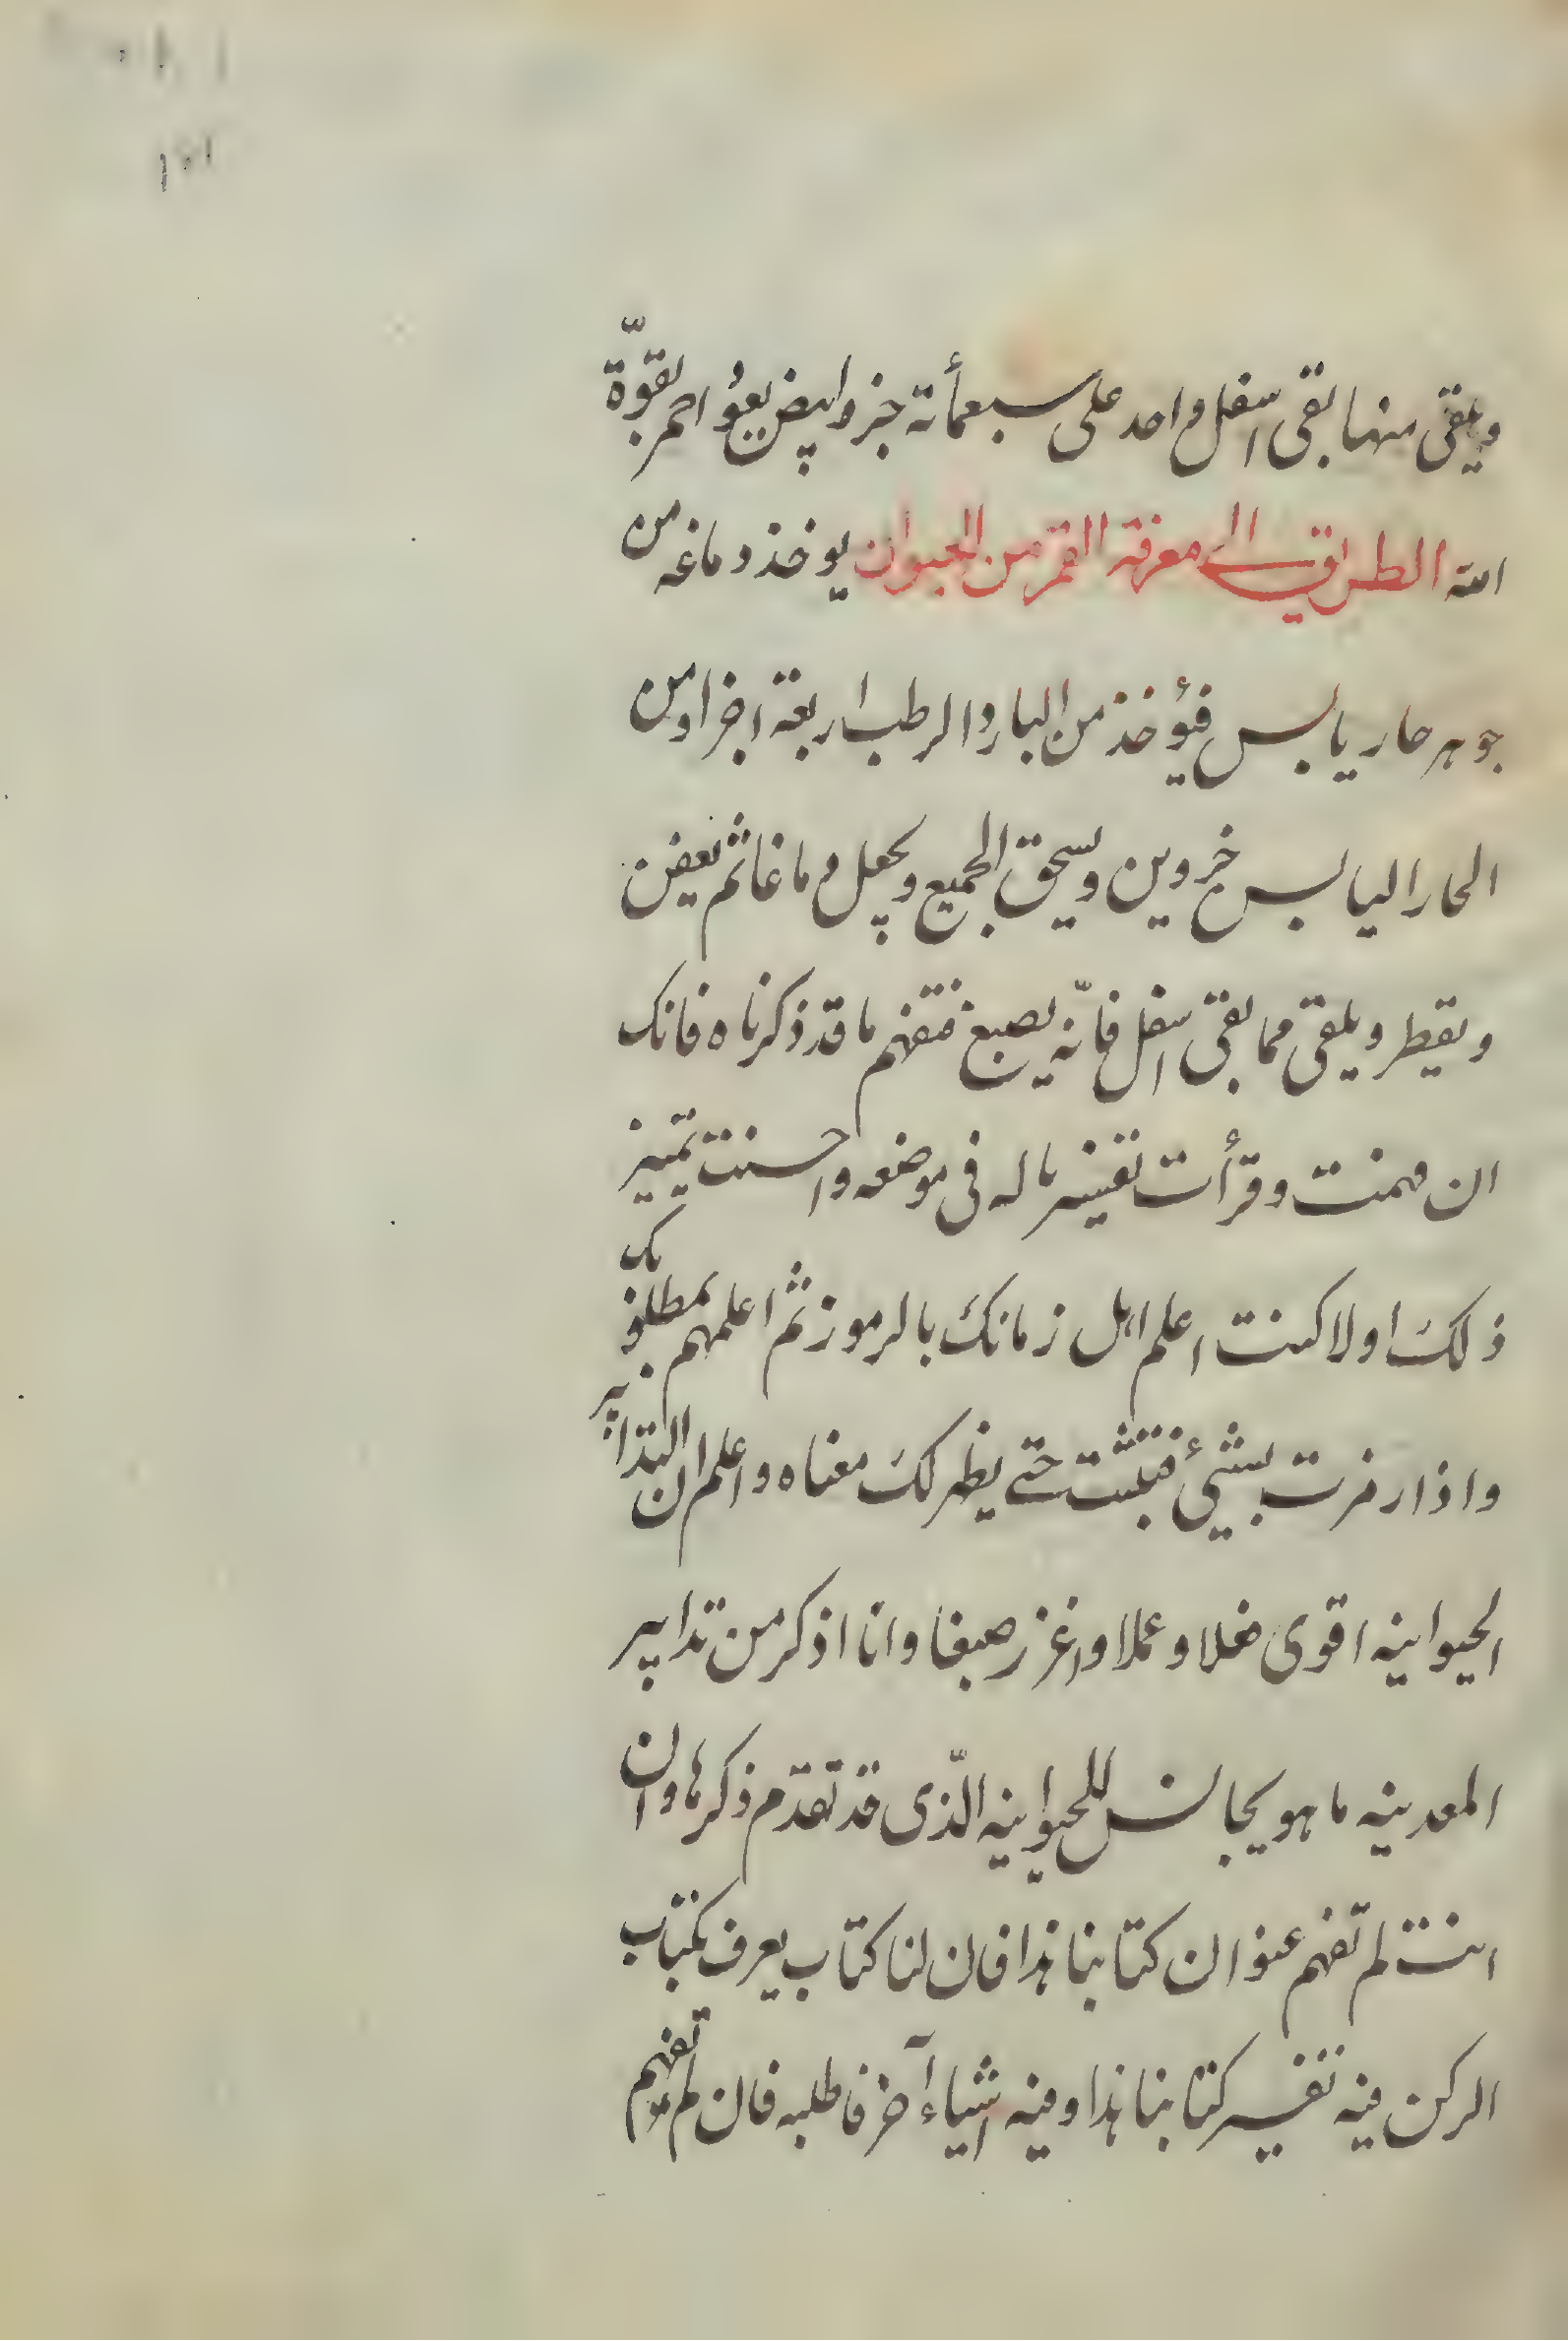 ويلقى منها بقى اسفل واحد على سبعمأته جزو ابيض يعود احمر بقوّة
الله الطريق الى معرفة القمر من الحيوان يوخذ دماغه من
جوهر حار يابس فيؤخذ من البارد الرطب اربعة اجزا ومن
الحار اليابس جزوين ويسحق الجميع ويجعل دماغا ثم يعفن
ويقطر ويلقى مما بقى اسفل فانّه يصبغ فتفهم ما قد ذكرناه فانك
ان فهمت وقرأت تفسير ماله فى موضعه واحسنت تمييز
ذلك اولا كنت اعلم اهل زمانك بالرموز ثم اعلمهم بمطلوبك
واذا رمزت بشيئ فتثبت حتى يظهر لك معناه واعلم ان التدابير
الحيوانيه اقوى فعلا وعملا واغزر صبغا وانا اذكر من تدابير
المعدنيه ما هو يجانس للحيوانيه الّذى قد تقدّم ذكرها وان
انت لم تفهم عنوان كتابنا هذا فان لنا كتاب يعرف بكتاب
الركن فيه تفسير كتابنا هذا وفيه اشياء آخر فاطلبه فان لم تفهم